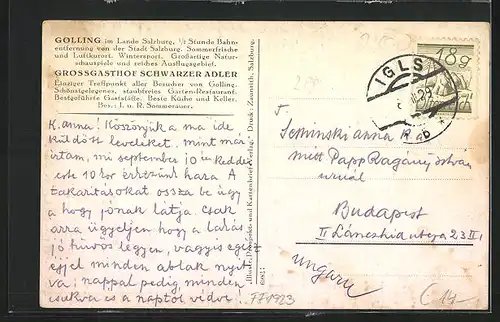 GOLLING im Lande Salzburg, ½ Stunde Bahn-
entfernung von der Stadt Salzburg. Sommerfrische
und Luftkurort. Wintersport. Großartige Natur-
schauspiele und reiches Ausflugsgebiet.
GROSSGASTHOF SCHWARZER ADLER
Einziger Treffpunkt aller Besucher von Golling.
Schönstgelegenes, staubfreies Garten-Restaurant.
Bestgeführte Gaststätte. Beste Küche und Keller.
Bes.: J. u. R. Sommerauer.
K. anna! Köszönjük a ma ide
küldött leveleket, mint már
írtam, mi september 10 én kedden
este 10 kor érkezünk haza. A
takarításokat ossza be úgy
a hogy jónak látja. Csak
arra ügyeljen hogy a lakás
jó hűvös legyen, vagyis egész
éjjel minden ablak nyit-
va; nappal pedig minden
csukva és a naptól védve.
F71923
Druck: Zaunrith, Salzburg.
18g
IGLS
anna
Papp
Budapest
II Lánczhid utcza 23 II
ungarn
C 14